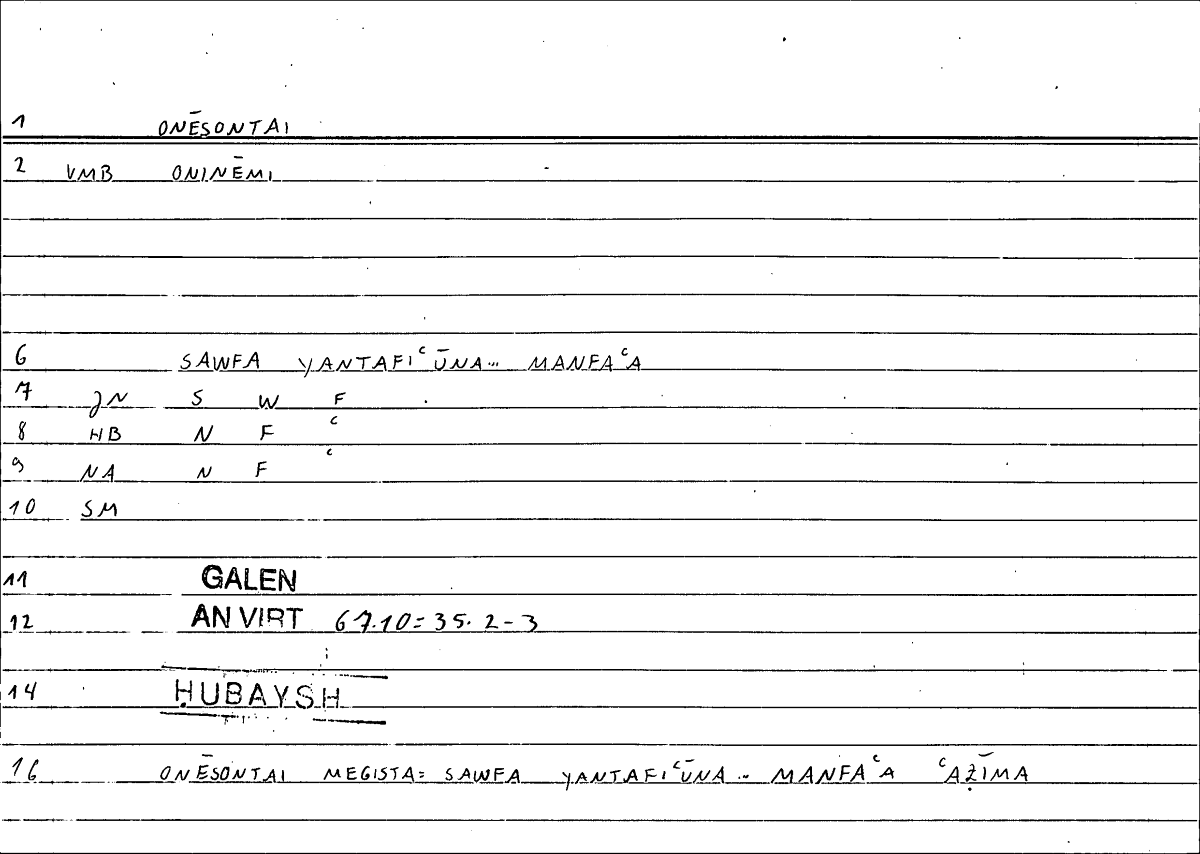 1 ONĒSONTAI
2 VMB ONINĒMI
6 SAWFA YANTAFIʿŪNA... MANFAʿA
7 JN S W F
8 HB N F ʿ
9 NA N F ʿ
10 SM
11 GALEN
12 AN VIRT 67.10=35.2-3
14 ḤUBAYSH
16 ONĒSONTAI MEGISTA= SAWFA YANTAFIʿŪNA.. MANFAʿA ʿAẒĪMA